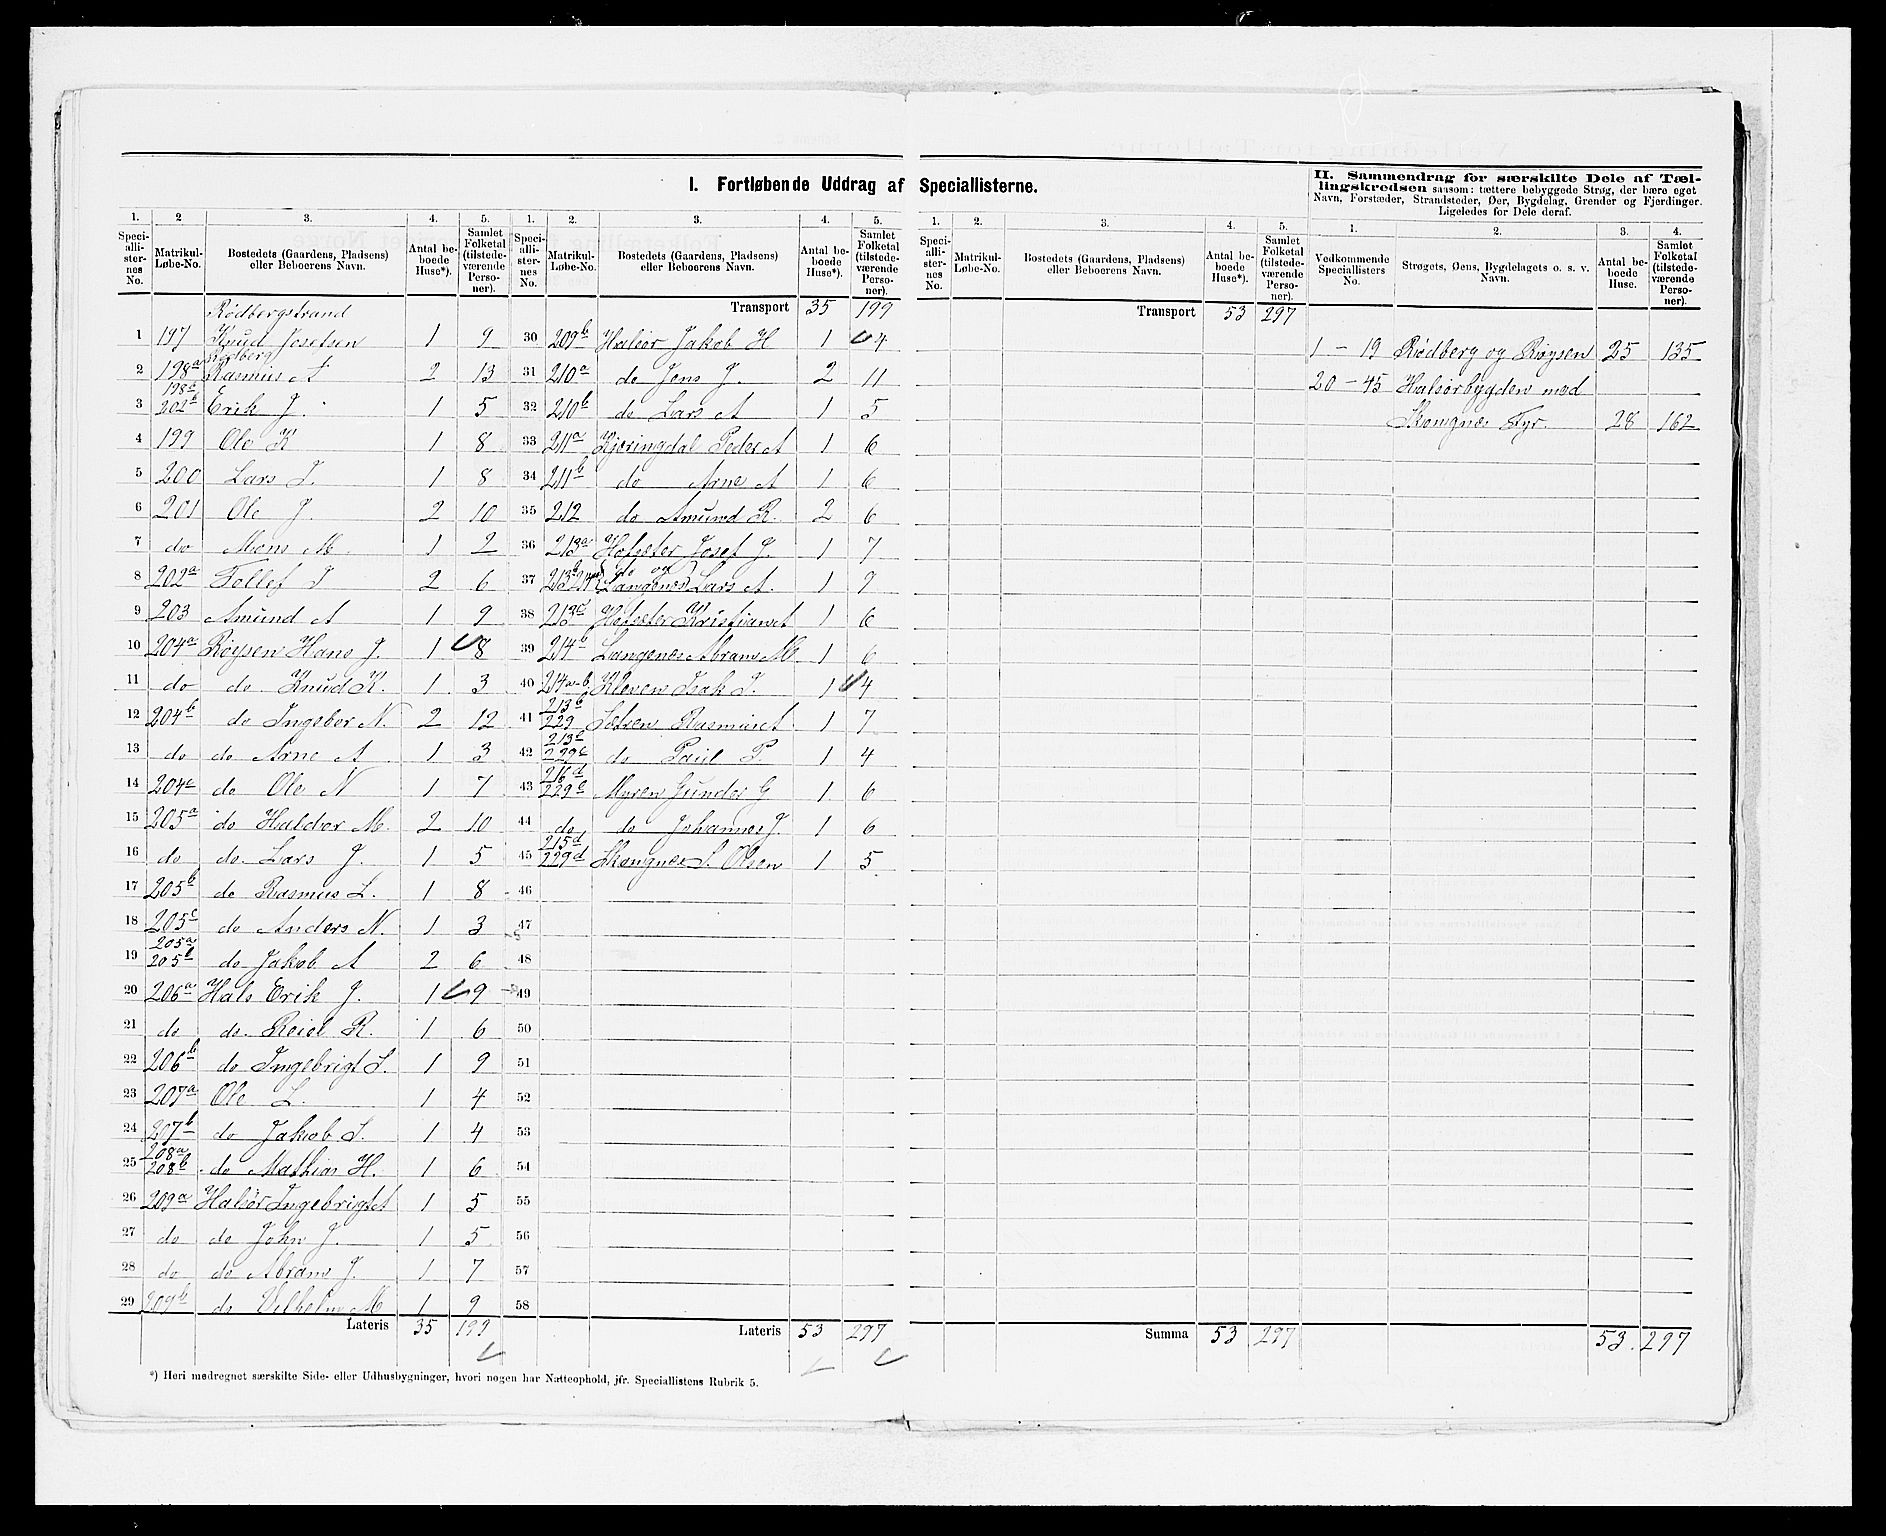 I. Fortløbende Uddrag af Speciallisterne.
II. Sammendrag for særskilte Dele af Tællingskredsen saasom: tættere bebyggede Strøg, der bære eget Navn, Forstæder, Strandsteder, Øer, Bygdelag, Grender og Fjerdinger. Ligeledes for Dele deraf.
1. 2 3. 4. 5. 1. 2. 3. 4. 5. 1. 2. 3. 4. 5. 1. 2. 3. 4.
Speciallisternes No. Matrikul-Løbe-No. Bostedets (Gaardens, Pladsens) eller Beboerens Navn. Antal beboede Huse*). Samlet Folketal (tilstedeværende Personer).
Speciallisternes No. Matrikul-Løbe-No. Bostedets (Gaardens, Pladsens) eller Beboerens Navn. Antal beboede Huse*). Samlet Folketal (tilstedeværende Personer).
Speciallisternes No. Matrikul-Løbe-No. Bostedets (Gaardens, Pladsens) eller Beboerens Navn. Antal beboede Huse*). Samlet Folketal (tilstedeværende Personer).
Vedkommende Speciallisters No. Strøgets, Øens, Bygdelagets o. s. v. Navn. Antal beboede Huse. Samlet Folketal (tilstedeværende Personer).
Rødbergstrand
1 197 Knud Josefsen 1 9
Rødberg
2 198a Rasmus A 2 13
3 198b 202b Erik J. 1 5
4 199 Ole K 1 8
5 200 Lars J. 1 8
6 201 Ole J. 2 10
7 do Mons M. 1 2
8 202a Tollef J 2 6
9 203 Amund A 1 9
10 204a Røysen Hans J. 1 8
11 do do Knud K. 1 3
12 204b do Ingebor N. 2 12
13 do do Arne A 1 3
14 204c do Ole N 1 7
15 205a do Haldor M. 2 10
16 do do Lars J. 1 5
17 205b do Rasmus L. 1 8
18 205c do Anders N. 1 3
19 205a 205b do Jakob A 2 6
20 206a Hals Erik J. 1 9
21 do do Reiel R. 1 6
22 206b do Ingebrigt L. 1 9
23 207a Ole L. 1 4
24 207b do Jakob L. 1 4
25 208a 208b do Mathias H. 1 6
26 209a Halsør Ingebrigt A 1 5
27 do do John J. 1 5
28 do do Abram J. 1 7
29 209b do Vilhelm M 1 9
Lateris 35 199
Transport 35 199
30 209b Halsør Jakob H 1 4
31 210a do Jens J. 2 11
32 210b do Lars A 1 5
33 211a Kjæringdal Peder A 1 6
34 211b do Arne A 1 6
35 212 do Amund R. 2 6
36 213a Hofsæter Josef J. 1 7
37 213b 214a do og Langenes Lars A. 1 9
38 213c Hofsæter Kristian A 1 6
39 214b Langenes Abram M 1 6
40 214a-b Kleven Isak J. 1 4
41 213b 229 Sætren Rasmus A. 1 7
42 213c 229c do Paul P. 1 4
43 216d 229e Myren Gunder G 1 6
44 do do Johannes J. 1 6
45 215d 229d Skongnes S. Olsen 1 5
46
47
48
49
50
51
52
53
54
55
56
57
58
Lateris 53 297
Transport 53 297
Summa 53 297
1 - 19 Rødberg og Røysen 25 135
20 - 45 Halsørbygden med
Skongnes Fyr. 28 162
53. 297
*) Heri medregnet særskilte Side- eller Udhusbygninger, hvori nogen har Natteophold, jfr. Speciallistens Rubrik 5.